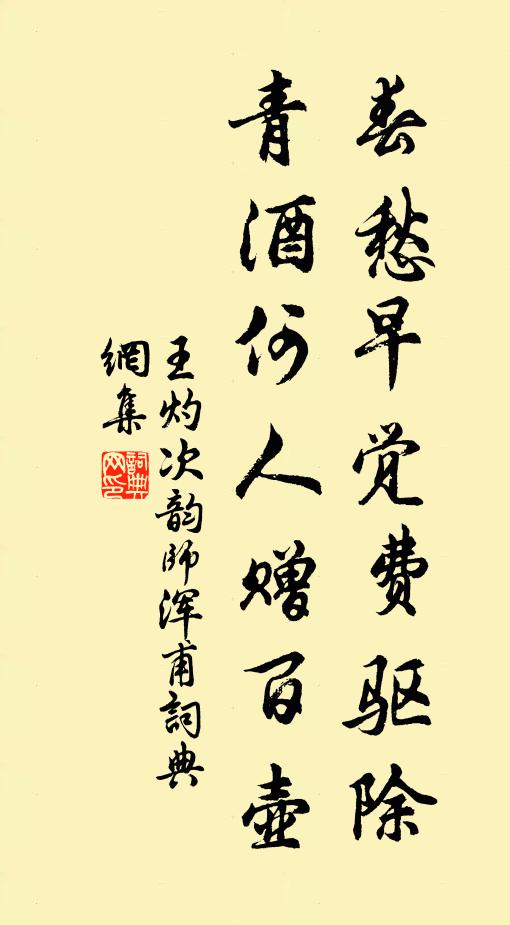 春愁早觉费驱除
青酒何人赠百壶
王灼次韵師浑甫詞典
網集
詞典网印